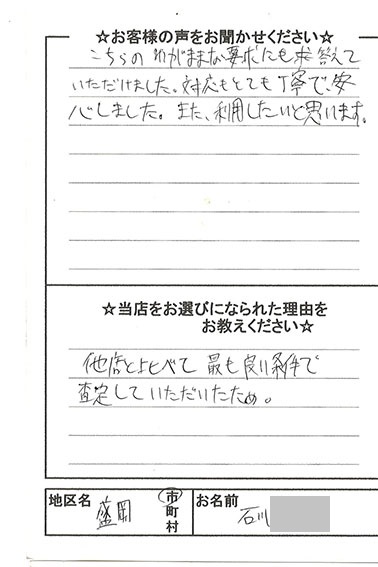 ☆お客様の声をお聞かせください☆
こちらのわがままな要求にも求答えて
いただけました。対応もとても丁寧で、安
心しました。また、利用したいと思います。
☆当店をお選びになられた理由を
お教えください☆
他店と比べて最も良い条件で
査定していただいたため。
地区名 盛岡 市町村 お名前 石川